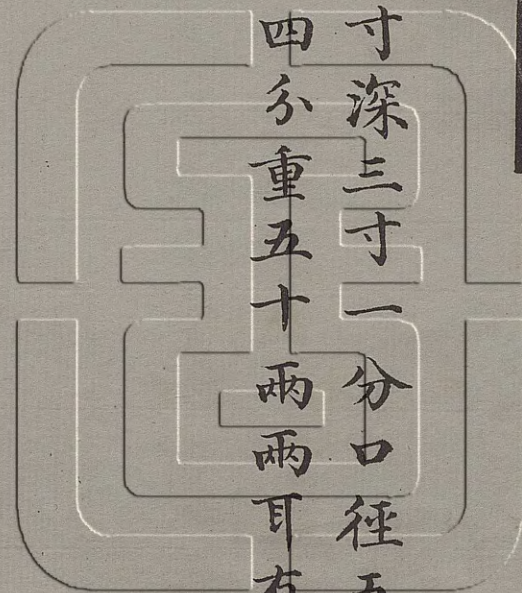 寸深三寸一分口徑五
四分重五十兩兩耳有